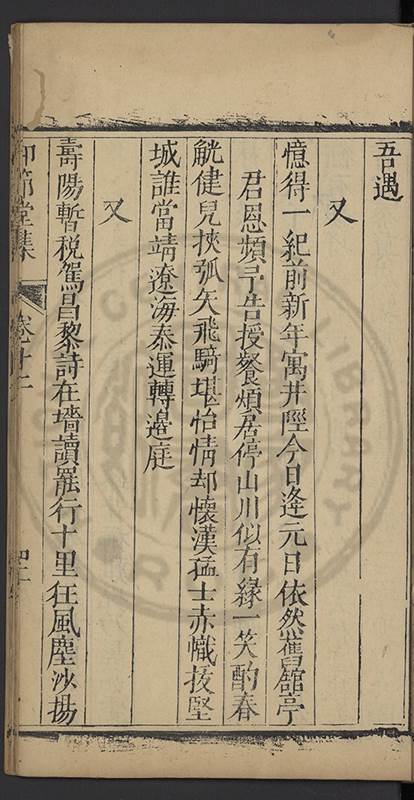 吾遇
又
憶得一紀前新年寓井陘今日逢元日依然舊舘亭
君恩頻予告授餐煩居停山川似有緣一笑酌春
觥健兒挾弧矢飛騎堪怡情却懷漢猛士赤幟拔堅
城誰當靖遼海泰運轉邉庭
又
壽陽暫税駕昌黎詩在墻讀罷行十里狂風塵沙揚
仰節堂集
卷十二